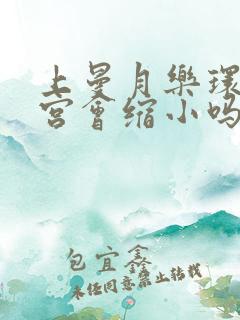 上曼月樂環
宮會缩小吗
包宜鑫
未经同意禁止转载